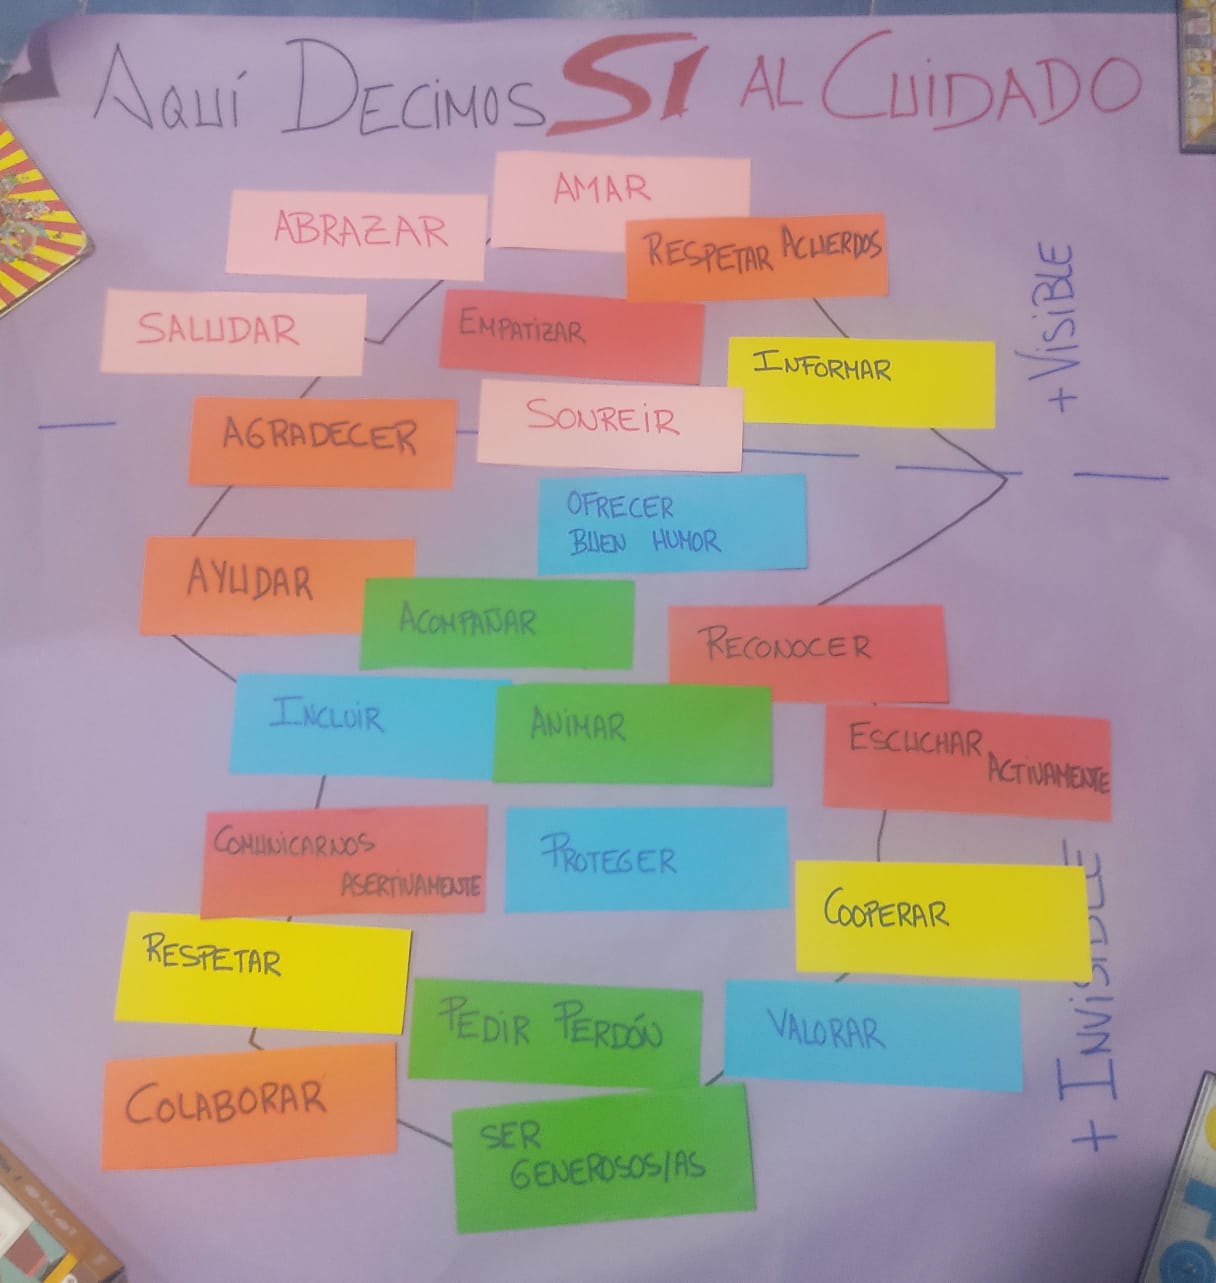 AQUÍ DECIMOS SI AL CUIDADO
AMAR
ABRAZAR
RESPETAR ACUERDOS
SALUDAR
EMPATIZAR
INFORMAR
+ VISIBLE
AGRADECER
SONREIR
OFRECER
BUEN HUMOR
AYUDAR
ACOMPAÑAR
RECONOCER
INCLUIR
ANIMAR
ESCUCHAR
ACTIVAMENTE
COMUNICARNOS
ASERTIVAMENTE
PROTEGER
COOPERAR
+ INVISIBLE
RESPETAR
PEDIR PERDÓN
VALORAR
COLABORAR
SER
GENEROSOS/AS